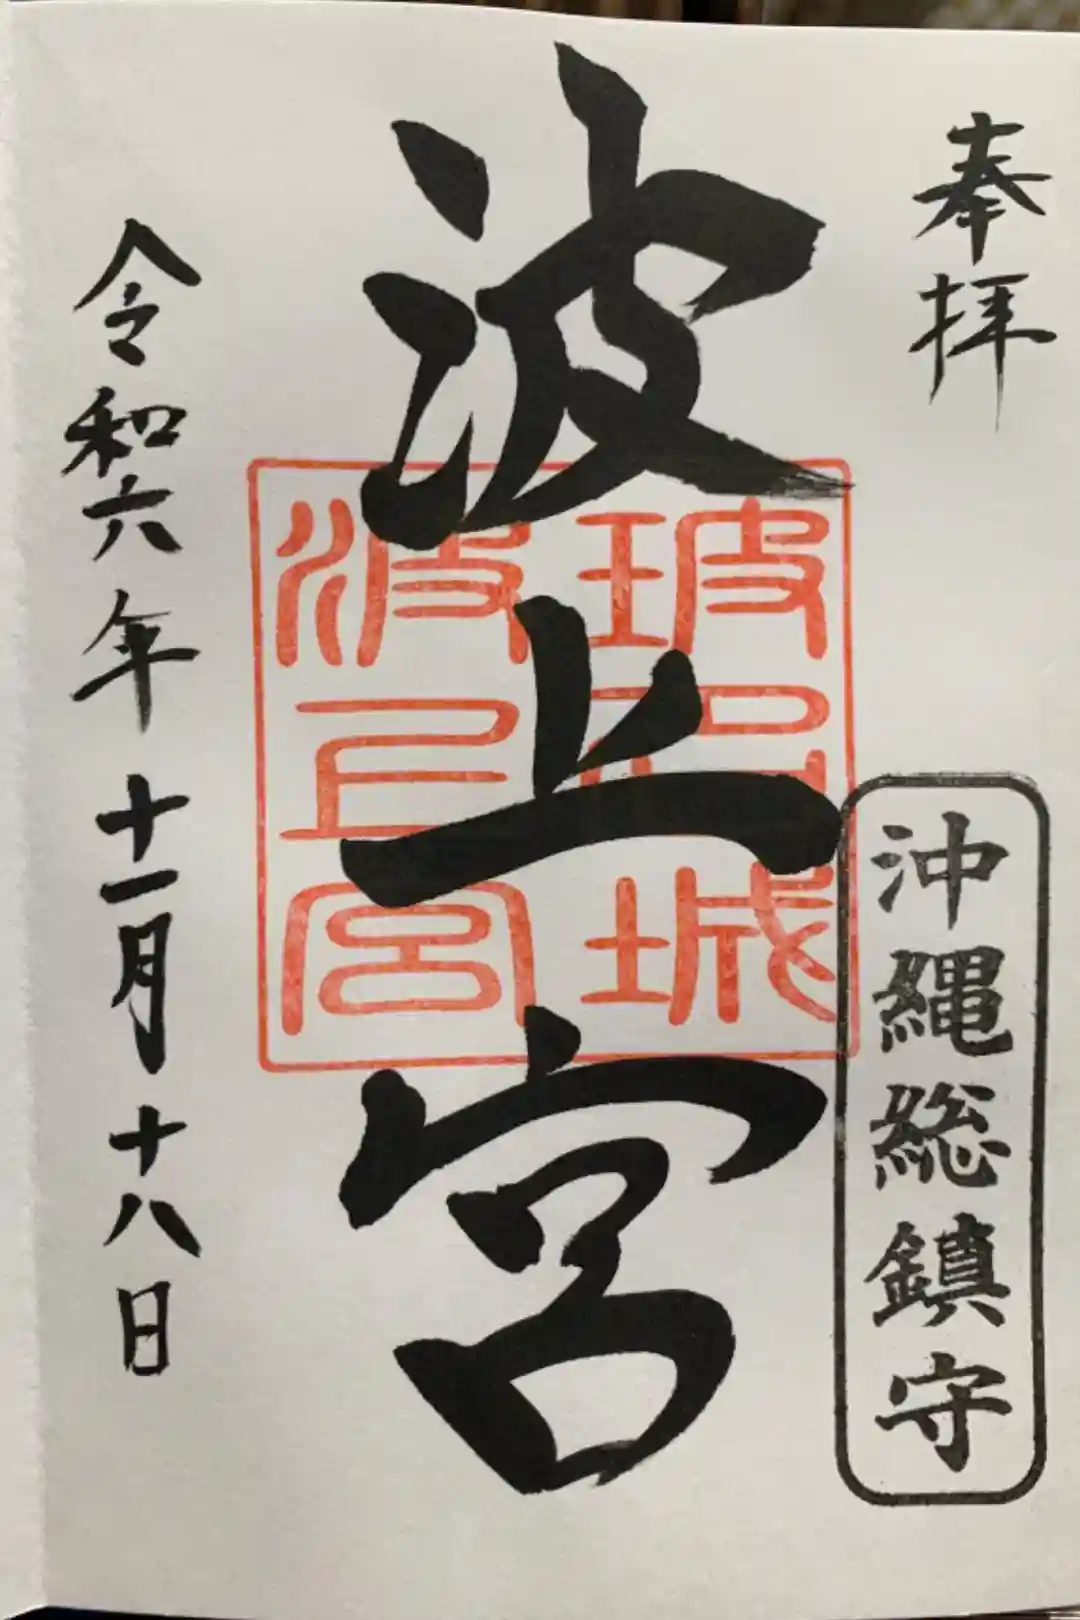 奉拝
沖縄総鎮守
波上宮
玻名城
波上宮
令和六年十一月十八日